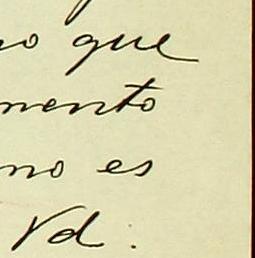 no que
mento
no es
Vd.